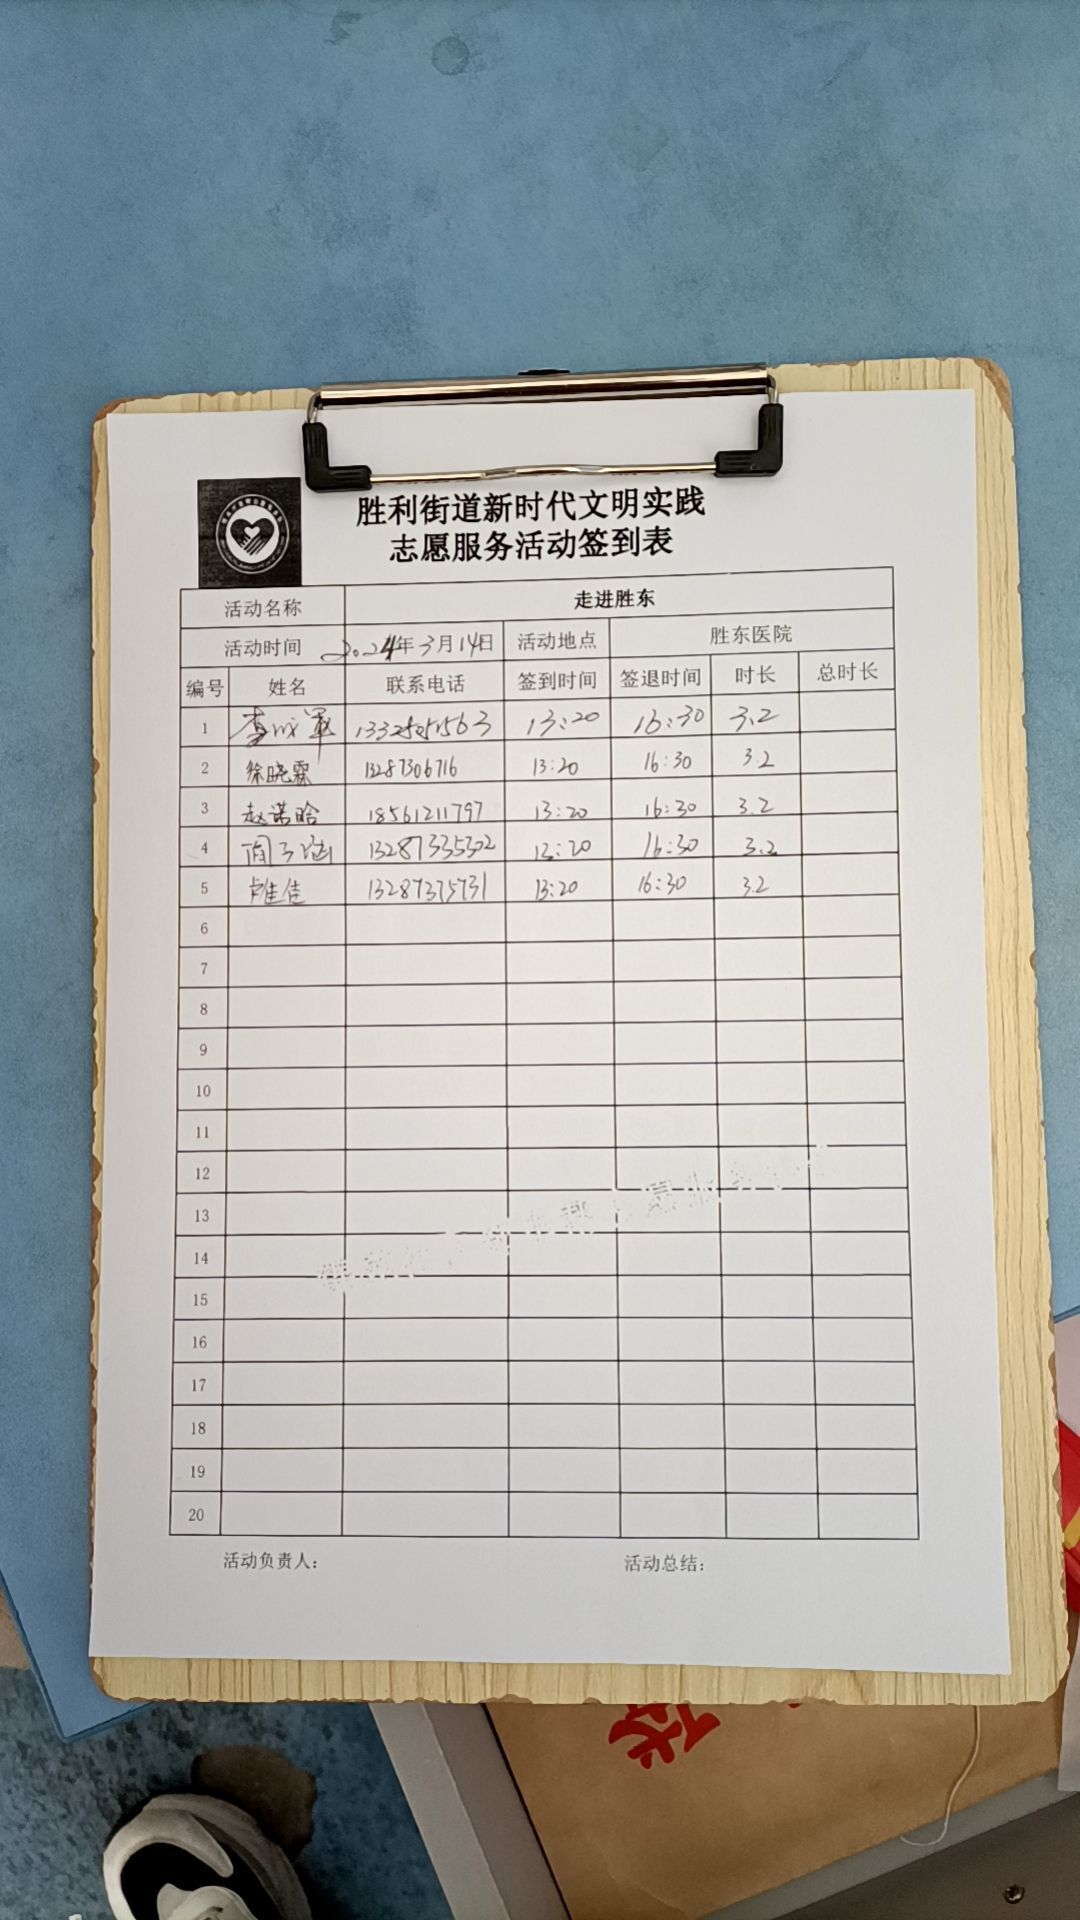 胜利街道新时代文明实践
志愿服务活动签到表
活动名称 走进胜东
活动时间 2024年3月14日 活动地点 胜东医院
编号 姓名 联系电话 签到时间 签退时间 时长 总时长
1 13:20 16:30 3.2
2 徐晓霖 13287306716 13:20 16:30 3.2
3 赵诺晗 18561211797 13:20 16:30 3.2
4 13287335302 13:20 16:30 3.2
5 13287375731 13:20 16:30 3.2
6
7
8
9
10
11
12
13
14
15
16
17
18
19
20
活动负责人: 活动总结: